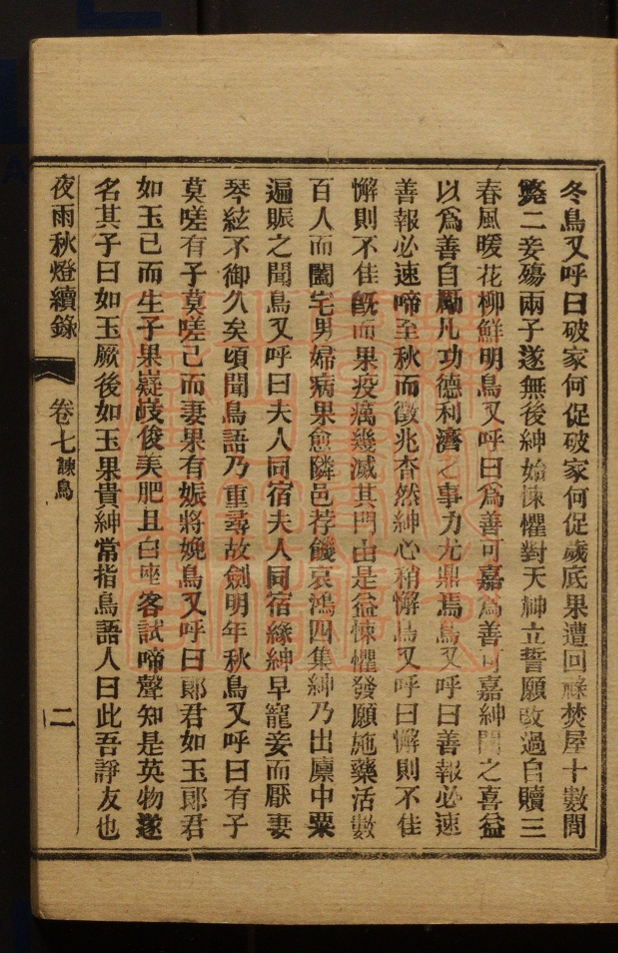 冬鳥又呼曰破家何促破家何促歲底果遭回祿焚屋十數間
斃二妾殤兩子遂無後紳始悚懼對天神立誓願改過自贖三
春風暖花柳鮮明鳥又呼曰爲善可嘉爲善可嘉紳聞之喜益
以爲善自勵凡功德利濟之事力尤鼎焉鳥又呼曰善報必速
善報必速啼至秋而徵兆杳然紳心稍懈鳥又呼曰懈則不佳
懈則不佳旣而果疫癘幾滅其門由是益悚懼發願施藥活數
百人而闔宅男婦病果愈隣邑荐饑哀鴻四集紳乃出廩中粟
遍賑之聞鳥又呼曰夫人同宿夫人同宿緣紳早寵妾而厭妻
琴絃不御久矣頃聞鳥語乃重尋故劍明年秋鳥又呼曰有子
莫嗟有子莫嗟已而妻果有娠將娩鳥又呼曰郞君如玉郞君
如玉已而生子果嶷岐俊美肥且白座客試啼聲知是英物遂
名其子曰如玉厥後如玉果貴紳常指鳥語人曰此吾諍友也
夜雨秋燈續錄 卷七 諫鳥 二